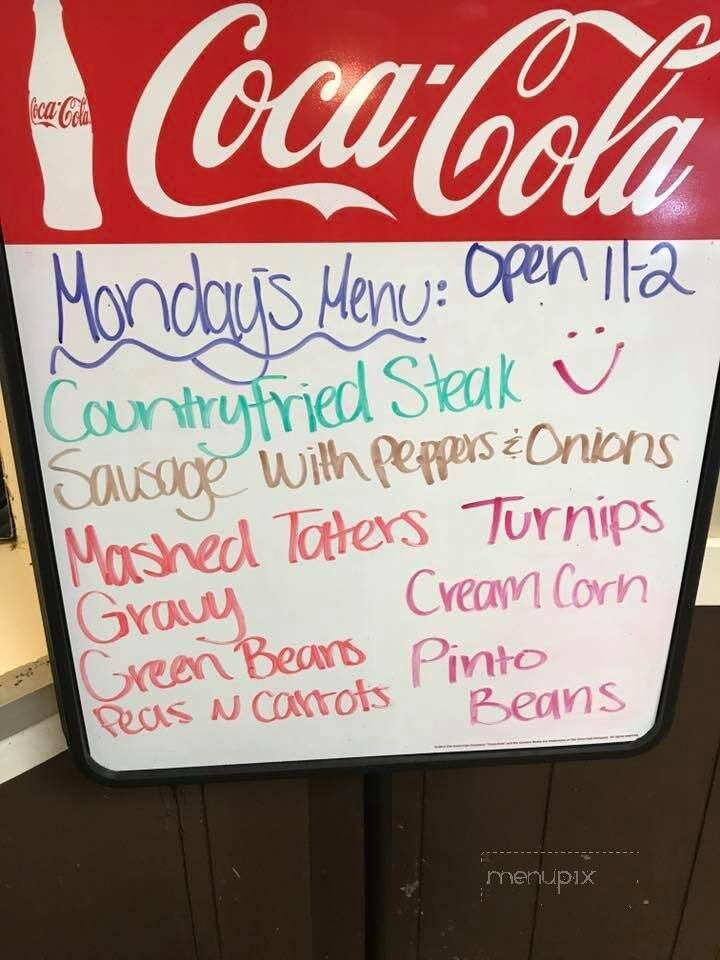 Coca-Cola
Coca-Cola
Monday's Menu: Open 11-2
Country Fried Steak
Sausage With Peppers & Onions
Mashed Taters
Gravy
Green Beans
Peas N Carrots
Turnips
Cream Corn
Pinto
Beans
menupix